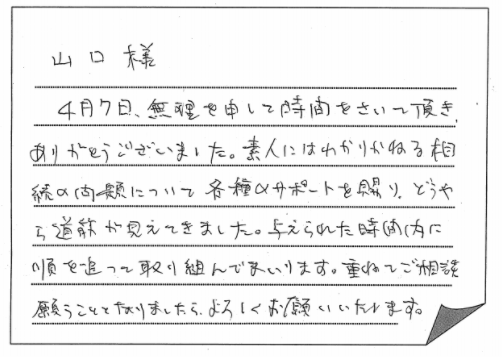 山口様
4月7日、無理を申して時間をさいて頂き、
ありがとうございました。素人にはわかりかねる相
続の問題について各種のサポートを賜り、どうや
ら道筋が見えてきました。与えられた時間内に
順を追って取り組んでまいります。重ねてご相談
願うこととなりましたら、よろしくお願いいたします。